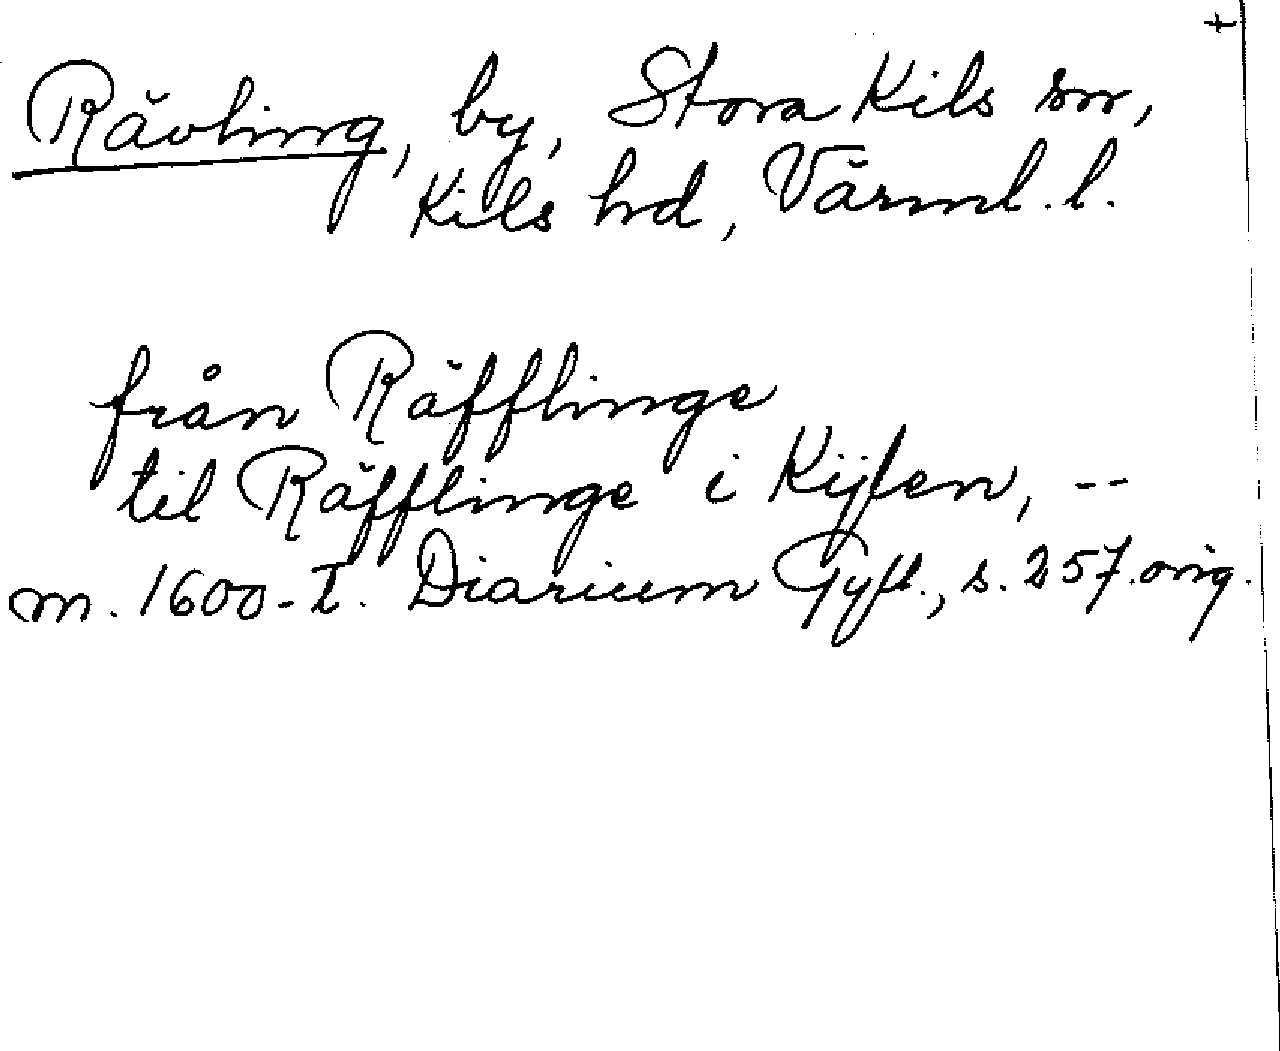 Rävling, by, Stora Kils sn,
Kils hd, Värml. l.
från Räfflinge
til Räfflinge i Kijlen, --
m. 1600-t. Diarium Gyll., s. 257. orig.